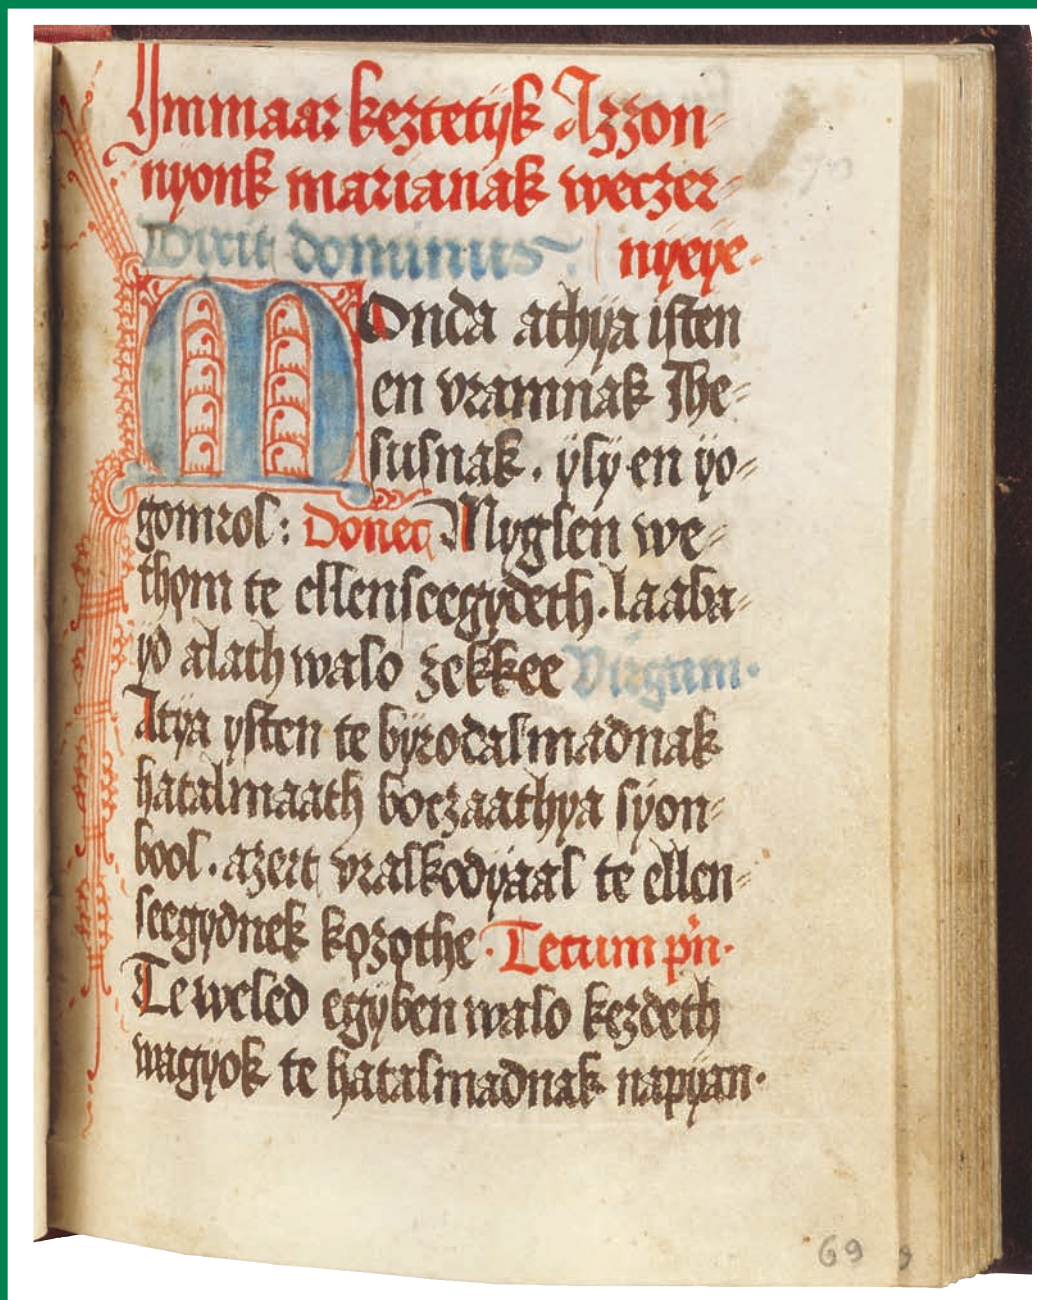 Ymmaar keztetijk Azzon⸗
nyonk marianak weczer⸗
Dixit dominus nyeye.
MOnda athÿa isten
en vramnak Jhe⸗
susnak. ÿlÿ en ÿo⸗
gomrol: Donec Mÿglen we⸗
thom te ellenseegÿdeth. laaba⸗
ÿd alath walo zekkee Virgam.
Atÿa ÿsten te bÿrodalmadnak
hatalmaath boczaathÿa sÿon⸗
bool. azert vralkodÿaal te ellen⸗
seegÿdnek kozothe. Tecum pn.
Te weled egÿben walo kezdeth
wagÿok te hatalmadnak napÿan.
69